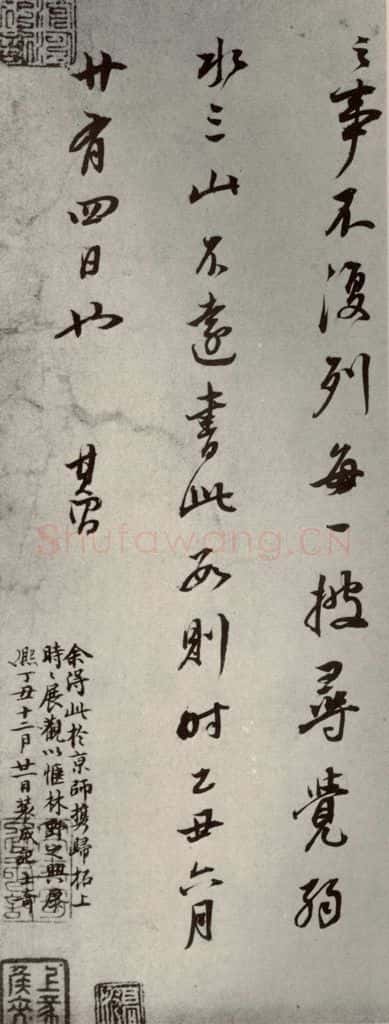 之事不復列每一披尋覺弱
水三山不遠書此數則時乙丑六月
廿有四日也 其昌
余得此於京師携歸柘上
時〻展觀以愜林野之興康
熙丁丑十二月廿一日裝成記士奇
Shufawang.CN